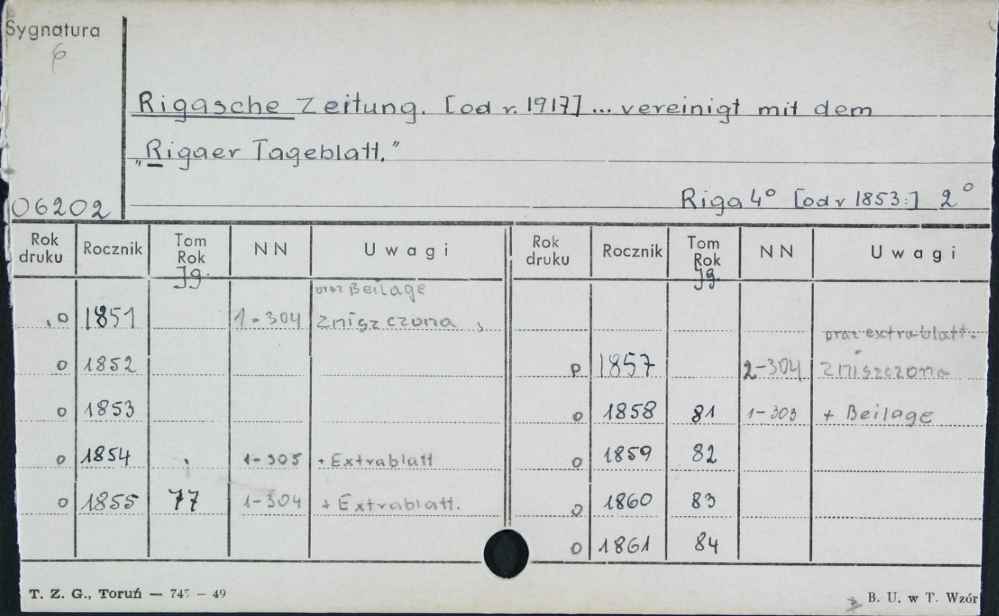 Sygnatura
6
Rigasche Zeitung. [od r. 1917] ... vereinigt mit dem
„Rigaer Tageblatt."
06202
Riga 4° [od r 1853:] 2°
Rok druku Rocznik Tom Rok Jg. NN Uwagi Rok druku Rocznik Tom Rok Jg. NN Uwagi
oraz Beilage
o 1851 1-304 Zniszczona
oraz extrablatt.
o 1852 p 1857 2-304 Zniszczona
o 1853 o 1858 81 1-303 + Beilage
o 1854 1-305 + Extrablatt o 1859 82
o 1855 77 1-304 + Extrablatt. o 1860 83
o 1861 84
T. Z. G., Toruń — 747 – 49
B. U. w T. Wzór